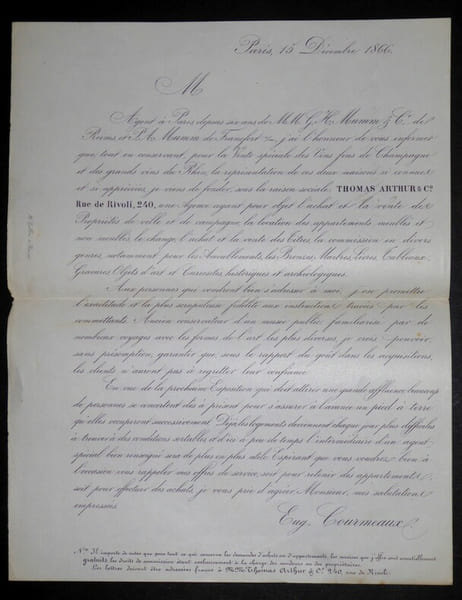 Paris, 15 Décembre 1866.
M
Agent à Paris depuis six ans de M.M. G. H. Mumm & Cie. de
Reims, et P. A. Mumm de Francfort s/m, j'ai l'honneur de vous informer
que, tout en conservant, pour la Vente spéciale des Vins fins de Champagne
et des grands vins du Rhin, la représentation de ces deux maisons si connues
et si appréciées, je viens de fonder, sous la raison sociale, THOMAS ARTHUR & Cie.
Rue de Rivoli, 240, une Agence ayant pour objet l'achat et la vente de
Propriétés de ville et de campagne, la location des appartements meublés et
non meublés, le change, l'achat et la vente des Titres, la commission en divers
genres, notamment pour les Ameublements, les Bronzes, Marbres, Livres, Tableaux,
Gravures, Objets d'art et Curiosités historiques et archéologiques.
Aux personnes qui voudront bien s'adresser à moi, j'ose promettre
l'exactitude et la plus scrupuleuse fidélité aux instructions tracées par les
committants. Ancien conservateur d'un musée public, familiarisé par de
nombreux voyages avec les formes de l'art les plus diverses, je crois pouvoir,
sans présomption, garantir que, sous le rapport du goût dans les acquisitions,
les clients n'auront pas à regretter leur confiance.
En vue de la prochaine Exposition qui doit attirer une grande affluence, beaucoup
de personnes se concertent dès à présent pour s'assurer à l'avance un pied à terre
qu'elles occuperont successivement. Déjà les logements deviennent chaque jour plus difficiles
à trouver à des conditions sortables et d'ici à peu de temps l'intermédiaire d'un agent
spécial bien renseigné sera de plus en plus utile. Espérant que vous voudrez bien à
l'occasion vous rappeler mes offres de service, soit pour retenir des appartements,
soit pour effectuer des achats, je vous prie d'agréer, Monsieur, mes salutations
empressées.
Eug. Courmeaux
Nota. Il importe de noter que pour tout ce qui concerne les demandes d'achats ou d'appartements, les services que j'offre sont essentiellement
gratuits, les droits de commission étant exclusivement à la charge des vendeurs ou des propriétaires.
Les lettres doivent être adressées franco à M.M. Thomas Arthur & Cie. 240, rue de Rivoli.